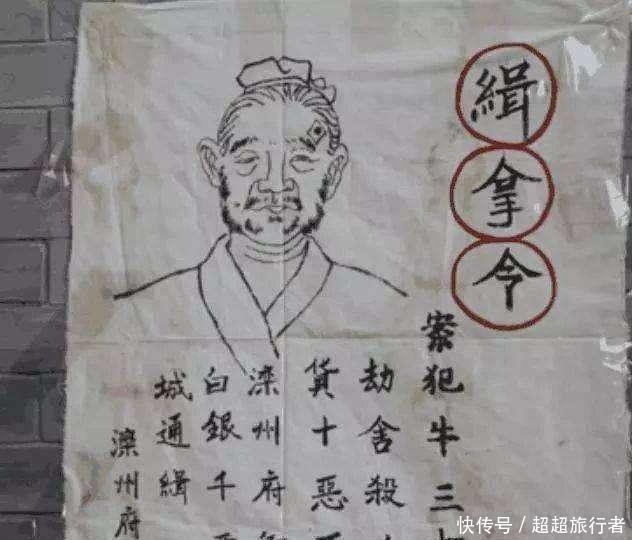 緝拿令
案犯牛三
劫舍殺
貨十惡
滦州府
白銀千
城通緝
滦州府
快传号／超超旅行者